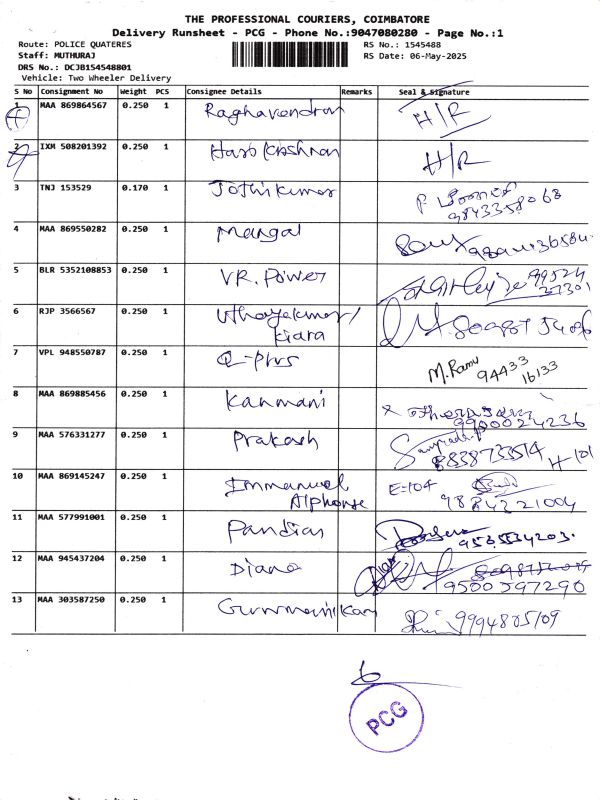 THE PROFESSIONAL COURIERS, COIMBATORE
Delivery Runsheet - PCG - Phone No.:9047080280 - Page No.:1
Route: POLICE QUATERES RS No.: 1545488
Staff: MUTHURAJ RS Date: 06-May-2025
DRS No.: DCJB1S4548801
Vehicle: Two Wheeler Delivery
S No Consignment No Weight PCS Consignee Details Remarks Seal & Signature
1 MAA 869864567 0.250 1 Raghavendran H/R
2 IXM 508201392 0.250 1 H/R
3 TNJ 153529 0.170 1 Jothikumar 9843358068
4 MAA 869550282 0.250 1 Mangal
5 BLR 5352108853 0.250 1 VR. Power 99524
27301
6 RJP 3566567 0.250 1 Uthayakumar/
Kiara
7 VPL 948550787 0.250 1 Q-plus M. Ramu 94433
16133
8 MAA 869885456 0.250 1 Kanmani
9900024236
9 MAA 576331277 0.250 1 Prakash
8838733514 H-101
10 MAA 869145247 0.250 1 Immanuel E=104
Alphonse 9884321004
11 MAA 577991001 0.250 1 Pandian
9535534203.
12 MAA 945437204 0.250 1 Diana
9500597290
13 MAA 303587250 0.250 1 Gunmanikan 9994805109
PCG